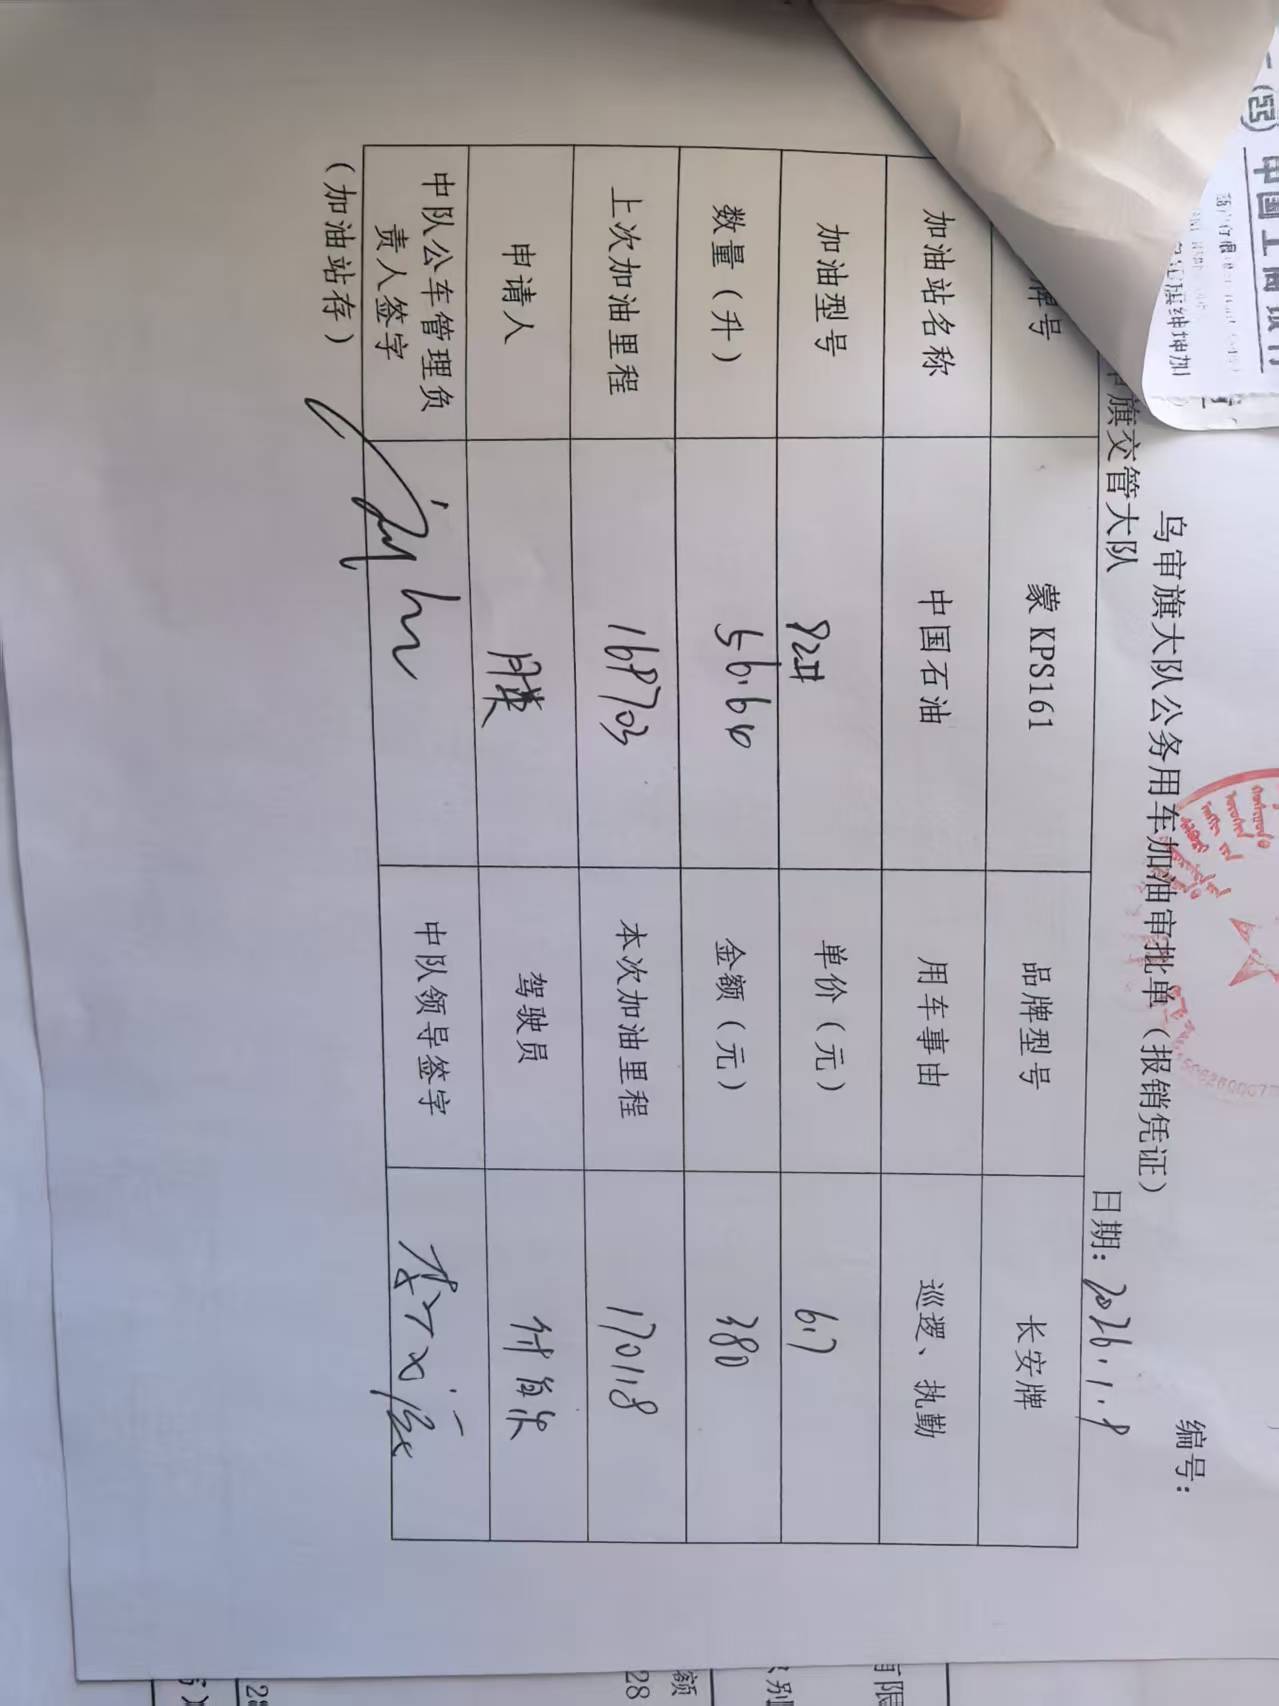 乌审旗大队公务用车加油审批单（报销凭证）
编号：
旗交管大队
日期：2026.1.8
牌号 蒙 KPS161 品牌型号 长安牌
加油站名称 中国石油 用车事由 巡逻、执勤
加油型号 92# 单价（元） 6.7
数量（升） 56.60 金额（元） 380
上次加油里程 168703 本次加油里程 170118
申请人 驾驶员
中队公车管理负责人签字 中队领导签字
（加油站存）
中国工商银行
额
28